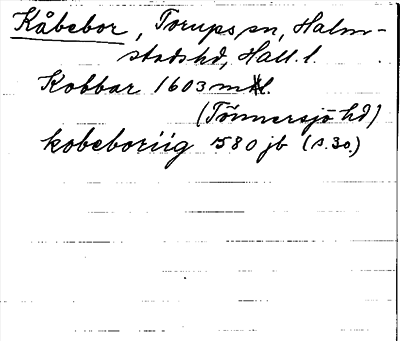 Kåbebor, Torups sn, Halm-
stads hd, Hall. l.
Kobbar 1603 mtl.
(Tönnersjö hd)
kobeboriig 1580 jb (s. 30.)